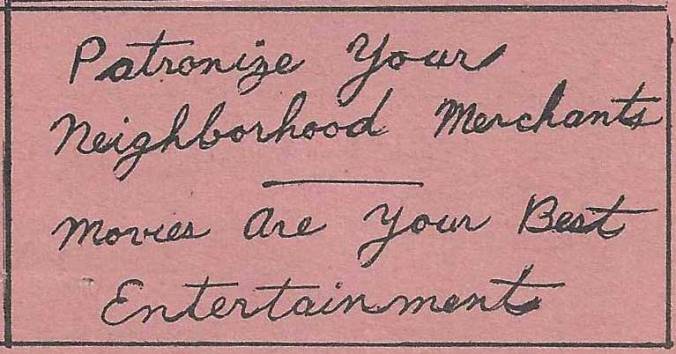 Patronize Your
Neighborhood Merchants
Movies Are Your Best
Entertainment